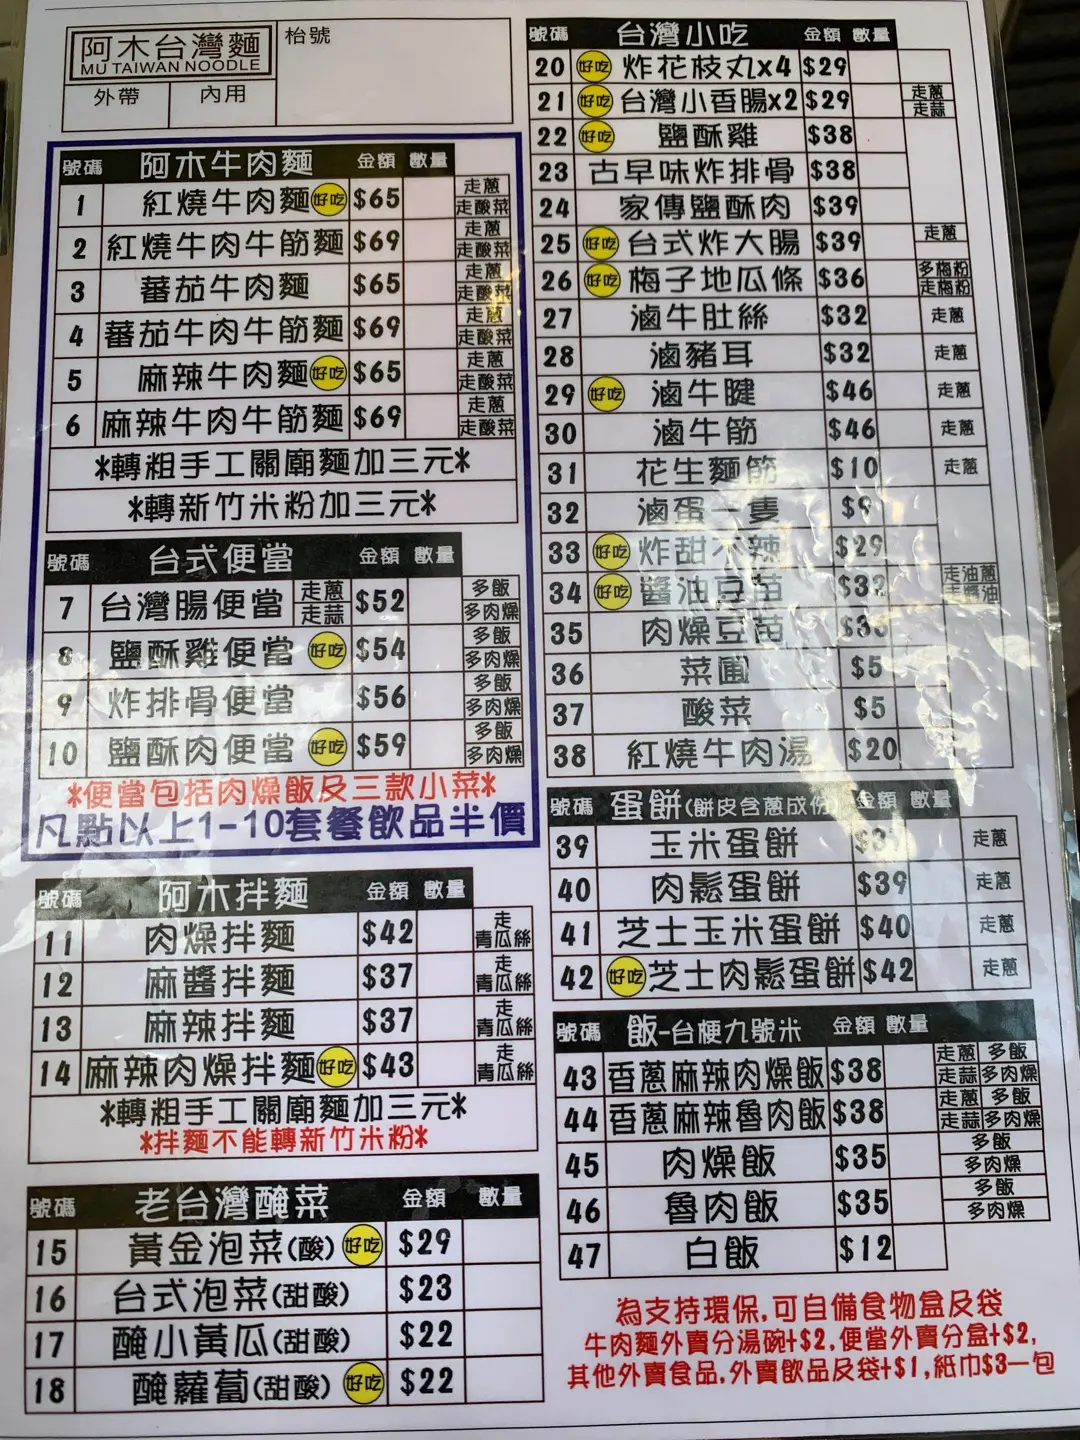 阿木台灣麵
MU TAIWAN NOODLE
枱號
外帶 內用
號碼 阿木牛肉麵 金額 數量
1 紅燒牛肉麵 好吃 $65 走蔥 走酸菜
2 紅燒牛肉牛筋麵 $69 走蔥 走酸菜
3 蕃茄牛肉麵 $65 走蔥 走酸菜
4 蕃茄牛肉牛筋麵 $69 走蔥 走酸菜
5 麻辣牛肉麵 好吃 $65 走蔥 走酸菜
6 麻辣牛肉牛筋麵 $69 走蔥 走酸菜
*轉粗手工關廟麵加三元*
*轉新竹米粉加三元*
號碼 台式便當 金額 數量
7 台灣腸便當 走蔥 走蒜 $52 多飯 多肉燥
8 鹽酥雞便當 好吃 $54 多飯 多肉燥
9 炸排骨便當 $56 多飯 多肉燥
10 鹽酥肉便當 好吃 $59 多飯 多肉燥
*便當包括肉燥飯及三款小菜*
凡點以上1-10套餐飲品半價
號碼 阿木拌麵 金額 數量
11 肉燥拌麵 $42 走青瓜絲
12 麻醬拌麵 $37 走青瓜絲
13 麻辣拌麵 $37 走青瓜絲
14 麻辣肉燥拌麵 好吃 $43 走青瓜絲
*轉粗手工關廟麵加三元*
*拌麵不能轉新竹米粉*
號碼 老台灣醃菜 金額 數量
15 黃金泡菜(酸) 好吃 $29
16 台式泡菜(甜酸) $23
17 醃小黃瓜(甜酸) $22
18 醃蘿蔔(甜酸) 好吃 $22
號碼 台灣小吃 金額 數量
20 好吃 炸花枝丸x4 $29
21 好吃 台灣小香腸x2 $29 走蔥 走蒜
22 好吃 鹽酥雞 $38
23 古早味炸排骨 $38
24 家傳鹽酥肉 $39
25 好吃 台式炸大腸 $39 走蔥
26 好吃 梅子地瓜條 $36 多梅粉 走梅粉
27 滷牛肚絲 $32 走蔥
28 滷豬耳 $32 走蔥
29 好吃 滷牛腱 $46 走蔥
30 滷牛筋 $46 走蔥
31 花生麵筋 $10 走蔥
32 滷蛋一隻 $9
33 好吃 炸甜不辣 $29
34 好吃 醬油豆苗 走油蔥 走醬油
35 肉燥豆苗
36 菜圃 $5
37 酸菜 $5
38 紅燒牛肉湯 $20
號碼 蛋餅(餅皮含蔥成份) 金額 數量
39 玉米蛋餅 走蔥
40 肉鬆蛋餅 $39 走蔥
41 芝士玉米蛋餅 $40 走蔥
42 好吃 芝士肉鬆蛋餅 $42 走蔥
號碼 飯-台梗九號米 金額 數量
43 香蔥麻辣肉燥飯 $38 走蔥 多飯 走蒜 多肉燥
44 香蔥麻辣魯肉飯 $38 走蔥 多飯 走蒜 多肉燥
45 肉燥飯 $35 多飯 多肉燥
46 魯肉飯 $35 多飯 多肉燥
47 白飯 $12
為支持環保,可自備食物盒及袋
牛肉麵外賣分湯碗+$2,便當外賣分盒+$2,
其他外賣食品,外賣飲品及袋+$1,紙巾$3一包